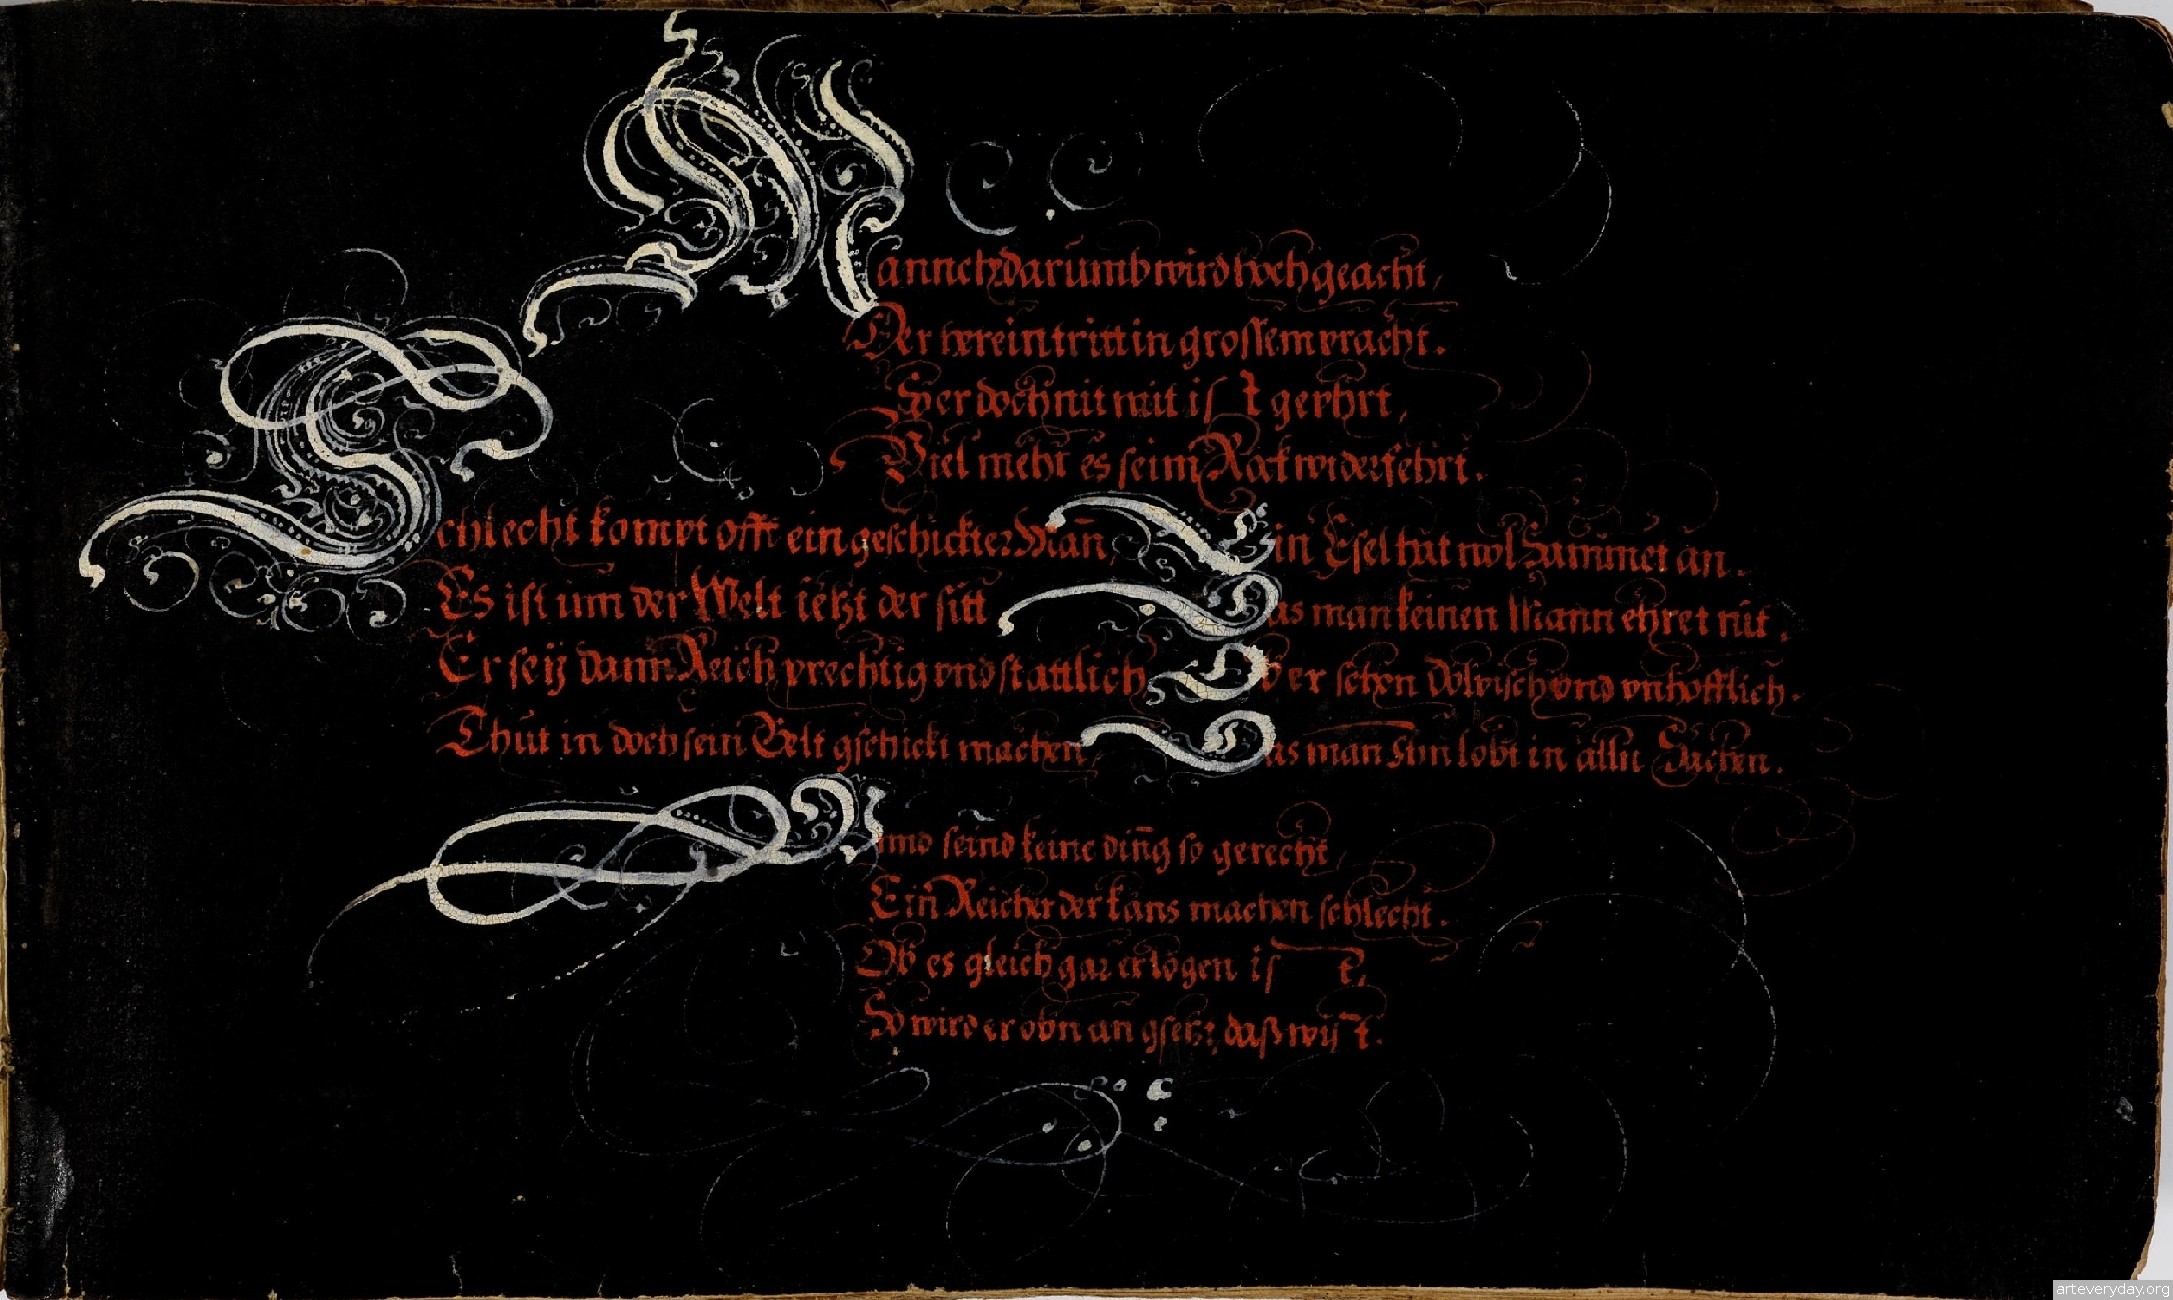 Mannch darumb wird hoch geacht,
Der herein tritt in grossem pracht.
Der doch nit mit ist geehrt,
Viel mehr es seim Rock widerfehrt.
Schlecht kompt offt ein geschickter Mañ,
Ein Esel hat wol Sammet an.
Es ist inn der Welt ietzt der sitt
Das man keinen Mann ehret nit,
Er seÿ dann Reich prechtig vnd stattlich,
Ob er schon Dölpisch vnd vnhofflich.
Thut in doch sein Gelt gschickt machen
Das man ihn lobt in alln Sachen.
Vnnd seind keine ding so gerecht,
Ein Reicher der kans machen schlecht.
Ob es gleich gar erlogen ist,
So wird er obn an gsetzt, daß wist.
arteveryday.org